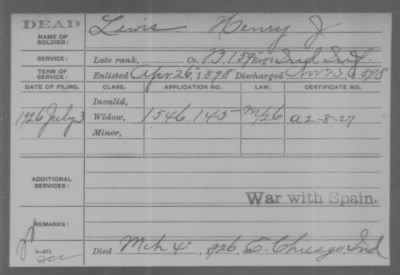 DEAD
NAME OF SOLDIER: Lewis Henry J
SERVICE: Late rank, Co. D, 159" Reg't Ind Inf.
TERM OF SERVICE: Enlisted Apr 26, 1898 Discharged Nov 23, 1898
DATE OF FILING. CLASS. APPLICATION NO. LAW. CERTIFICATE NO.
Invalid,
1926 July 3 Widow, 1546.145 M/26 A 2-8-27
Minor,
ADDITIONAL SERVICES:
War with Spain.
REMARKS:
Died Mch 4, 1926, at E. Chicago Ind